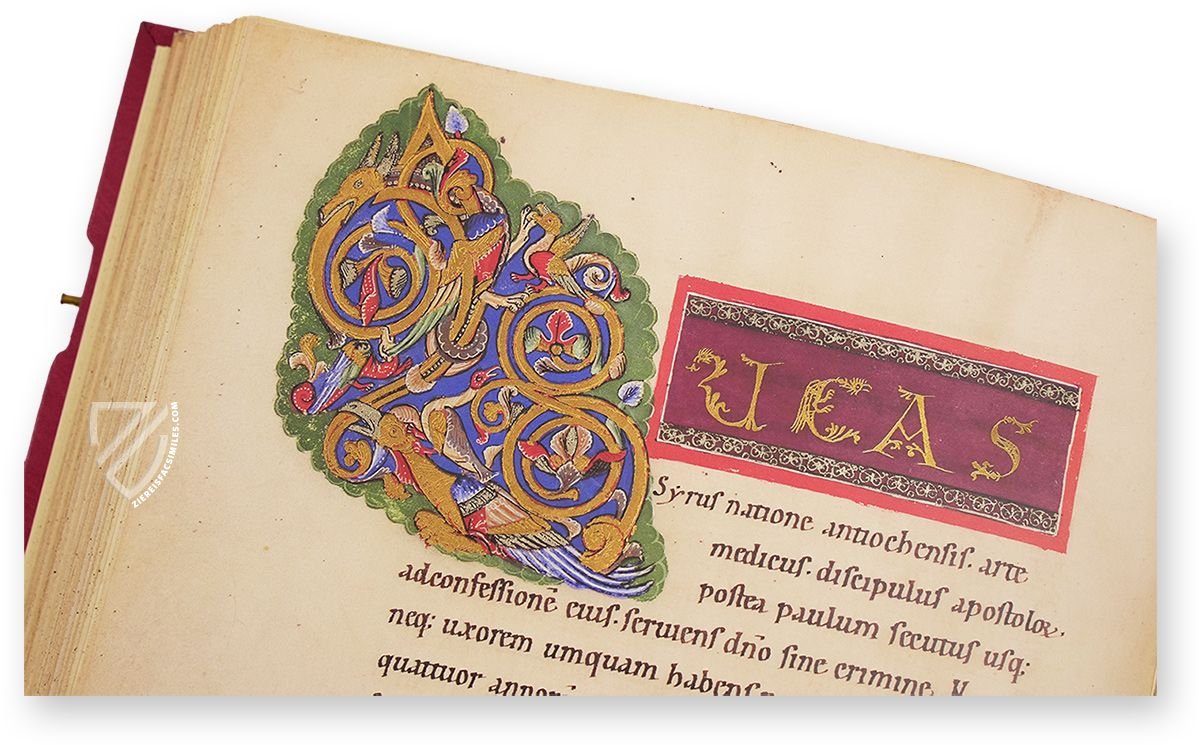 LUCAS
Syrus natione antiochensis. arte
medicus. discipulus apostoloꝝ.
postea paulum secutus usq;
adconfessionē eius. seruiens dn̄o sine crimine. N
neq; uxorem umquam habens
quattuor annorū
ZIEREISFACSIMILES.COM